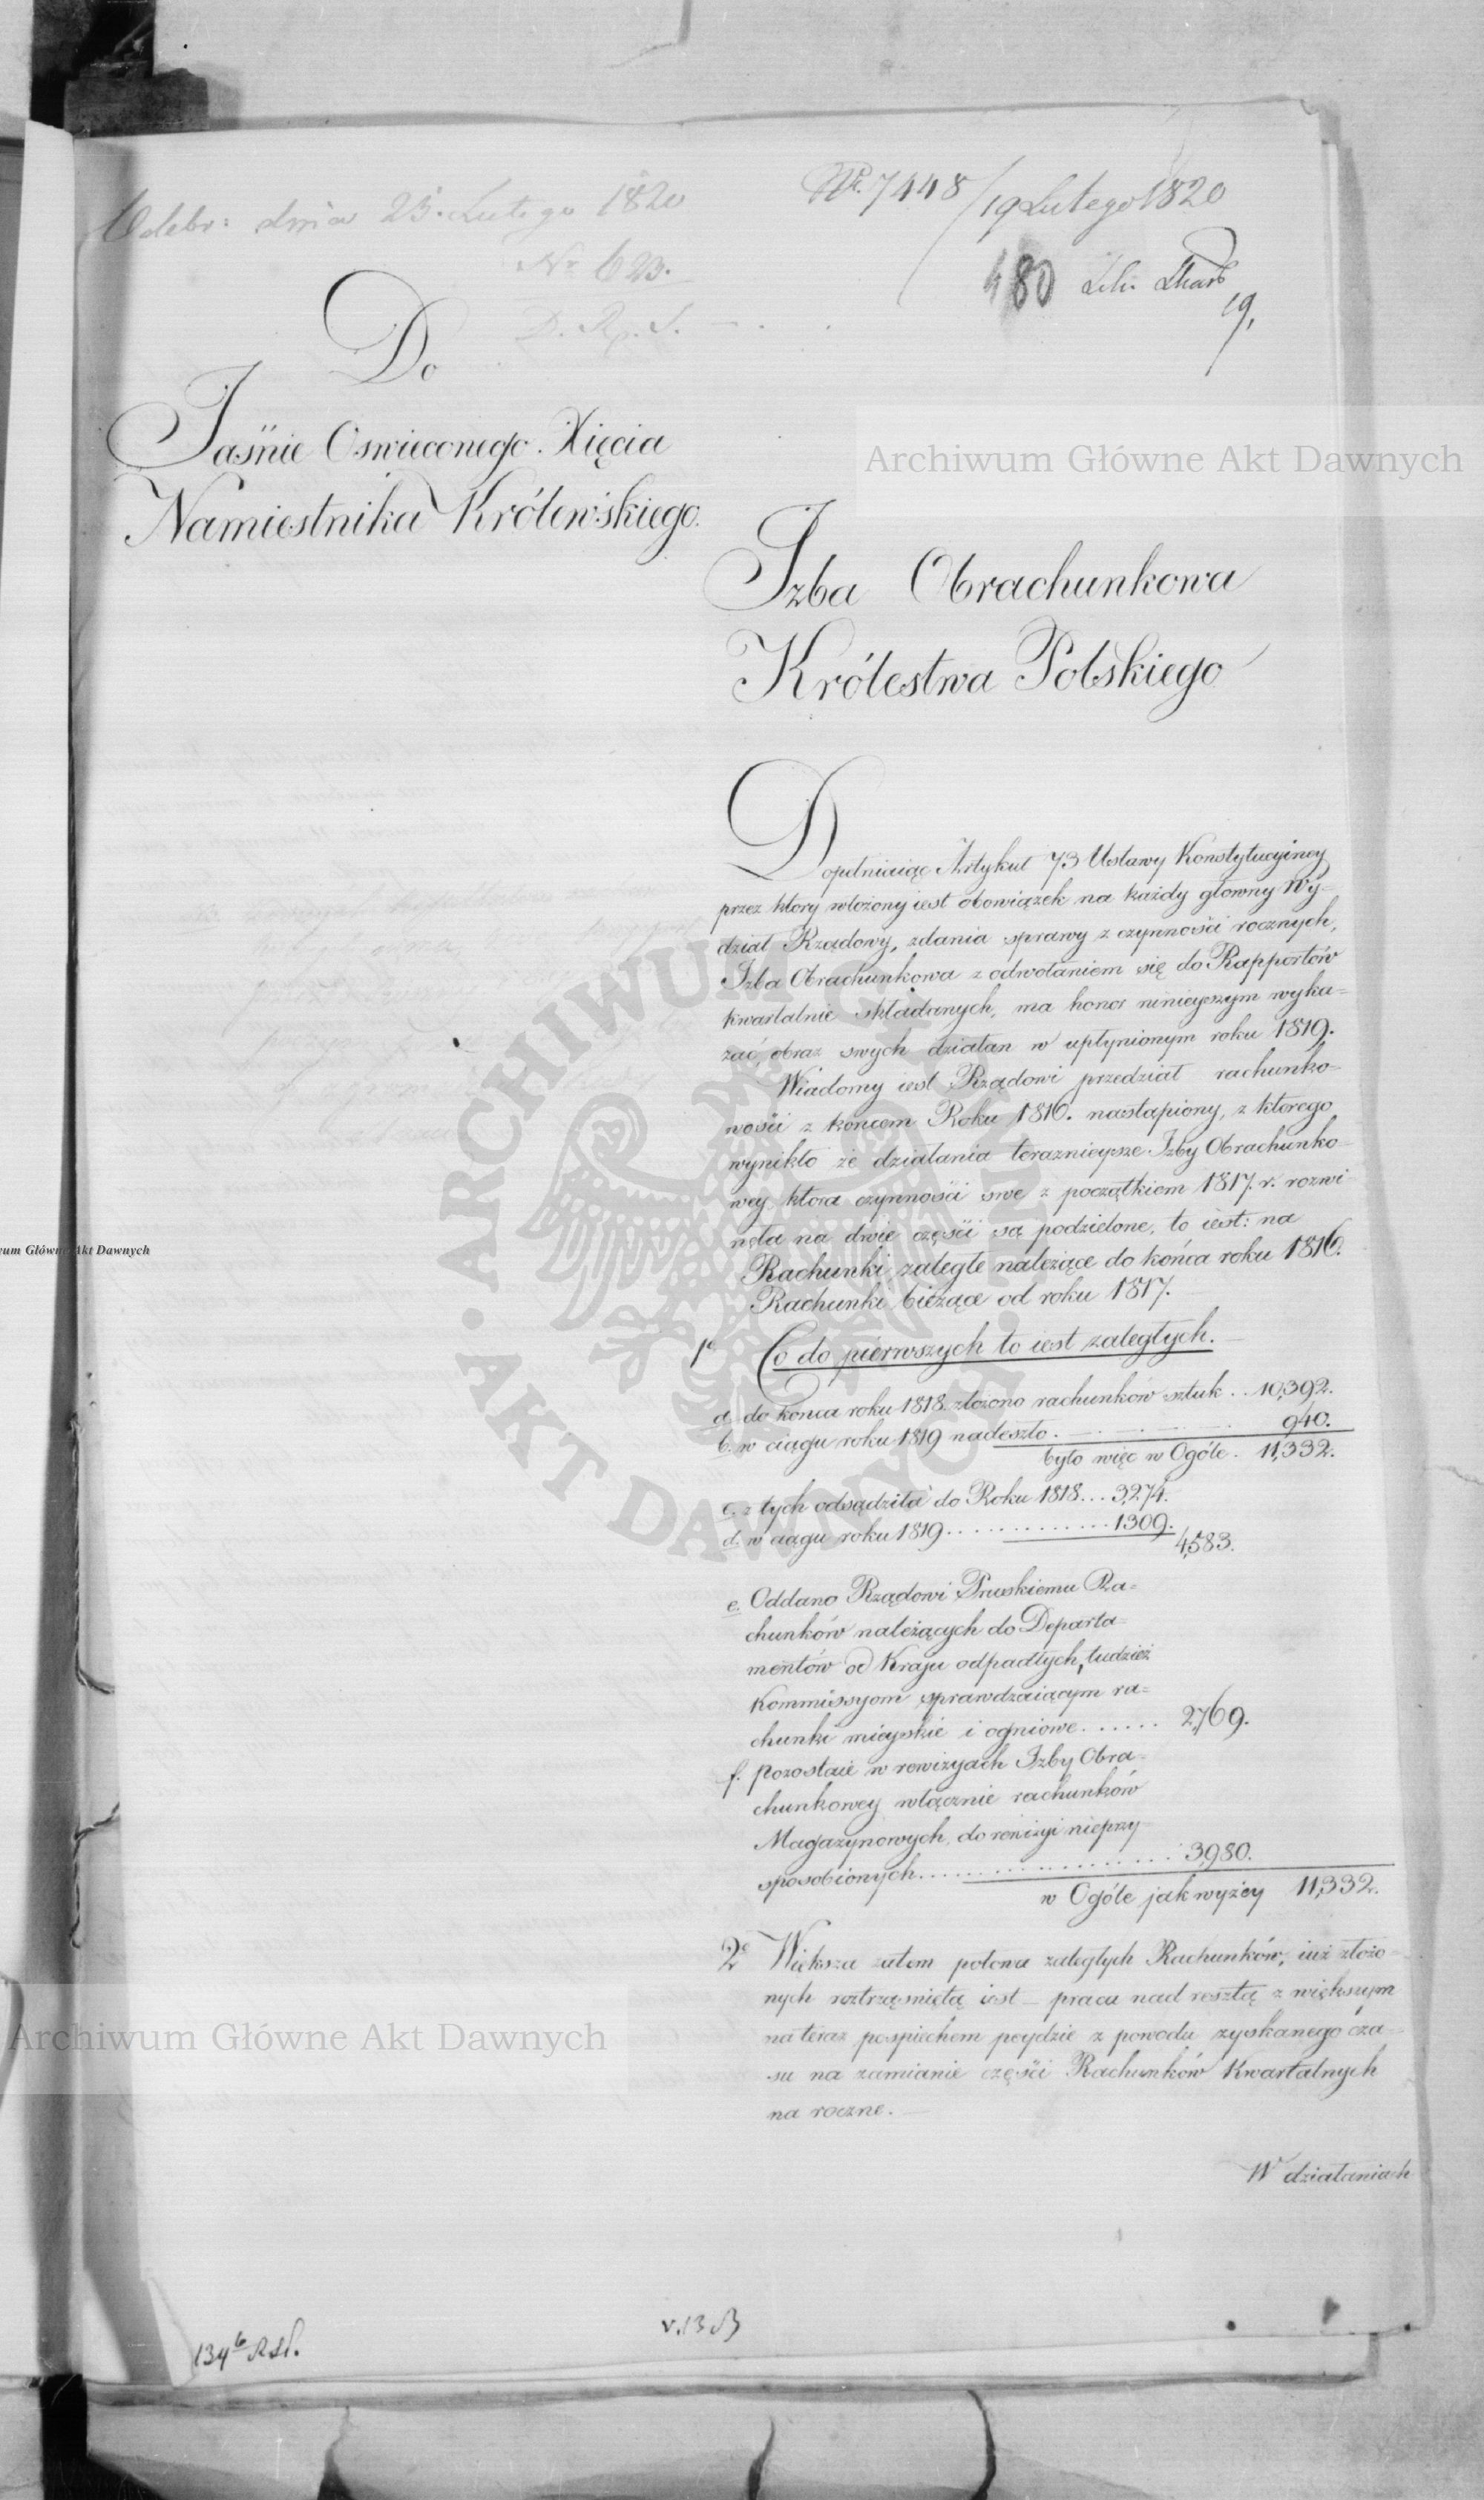 Odebr: dnia 23. Lutego 1820
No 623.
D. R. S.
No. 7448/19 Lutego 1820
480
19.
Do
Jaśnie Oswieconego Xięcia
Namiestnika Królewskiego.
Archiwum Główne Akt Dawnych
Izba Obrachunkowa
Królestwa Polskiego
Dopełniaiąc Artykuł 73 Ustawy Konstytucyiney
przez ktory włożony iest obowiązek na każdy głowny Wy=
dział Rządowy, zdania sprawy z czynności rocznych,
Izba Obrachunkowa z odwołaniem się do Rapportów
kwartalnie składanych, ma honor ninieyszym wyka=
zać, obraz swych działan w upłynionym roku 1819.
Wiadomy iest Rządowi przedział rachunko=
wości z końcem Roku 1816. nastąpiony, z ktorego
wynikło że działania teraznieysze Izby Obrachunko=
wey ktora czynności swe z początkiem 1817. r. rozwi=
nęła na dwie części są podzielone, to iest: na
Rachunki zaległe należące do końca roku 1816.
Rachunki bieżące od roku 1817.
1o Co do pierwszych to iest zaległych.
a. do konca roku 1818. złożono rachunków sztuk .. 10,392.
b. w ciągu roku 1819 nadeszło . 940.
było więc w Ogóle . 11,332.
c. z tych odsądziła do Roku 1818... 3,274.
d. w ciągu roku 1819 .............. 1309.
4,583.
e. Oddano Rządowi Pruskiemu Ra=
chunków należących do Departa=
mentów od Kraju odpadłych, tudzież
Kommissyom sprawdzaiącym ra=
chunki mieyskie i ogniowe ...... 2,769.
f. pozostaie w rewizyach Izby Obra=
chunkowey włącznie rachunków
Magazynowych, do rewizyi nieprzy=
sposobionych .................. 3,980.
w Ogóle jak wyżey 11,332.
2o Większa zatem połowa zaległych Rachunków, iuż złożo=
nych roztrząśniętą iest — praca nad resztą z większym
na teraz pospiechem poydzie z powodu zyskanego cza=
su na zamianie części Rachunków Kwartalnych
na roczne. —
W działaniach
134b RSt.
v. 13
ARCHIWUM GŁÓWNE
AKT DAWNYCH
wum Główne Akt Dawnych
Archiwum Główne Akt Dawnych